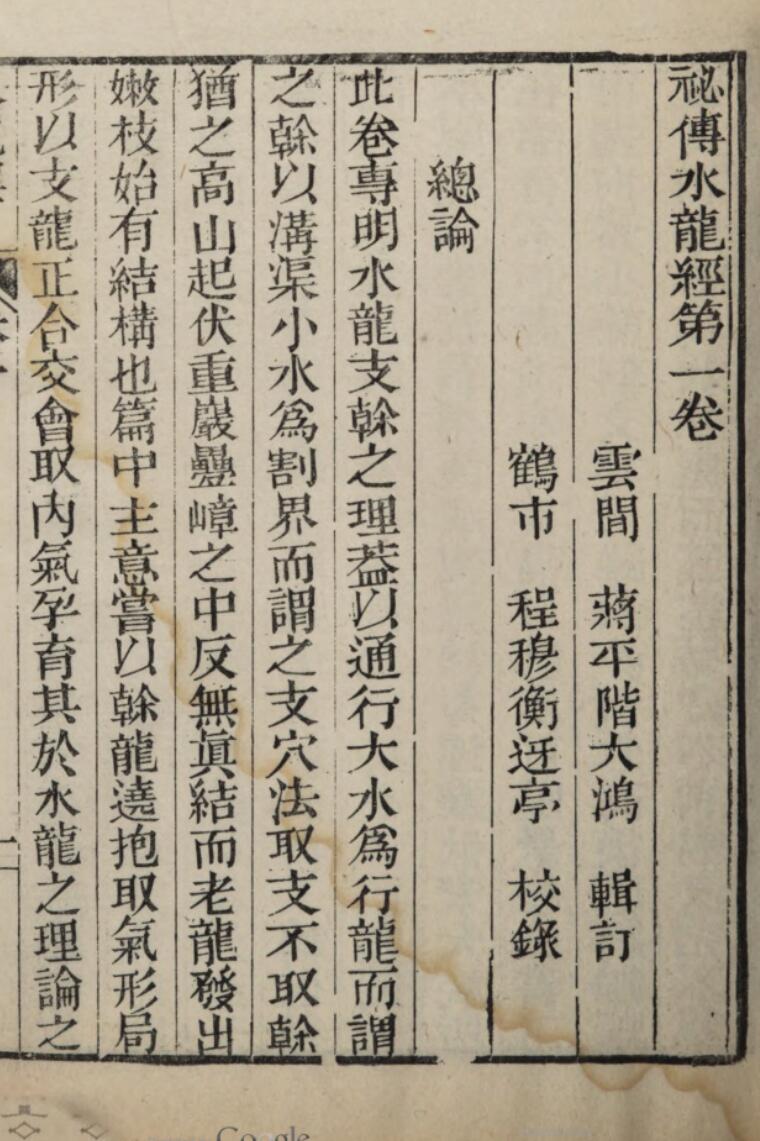 祕傳水龍經第一卷
雲間 蔣平階大鴻 輯訂
鶴市 程穆衡迓亭 校錄
總論
此卷專明水龍支榦之理葢以通行大水爲行龍而謂
之榦以溝渠小水爲割界而謂之支穴法取支不取榦
猶之高山起伏重巖疊嶂之中反無眞結而老龍發出
嫩枝始有結構也篇中主意嘗以榦龍遶抱取氣形局
形以支龍正合交會取內氣孕育其於水龍之理論之
Google